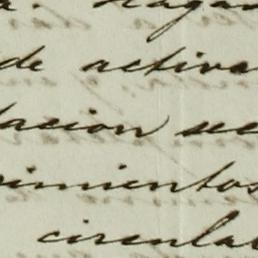 de activa
lacion se
imientos
circula